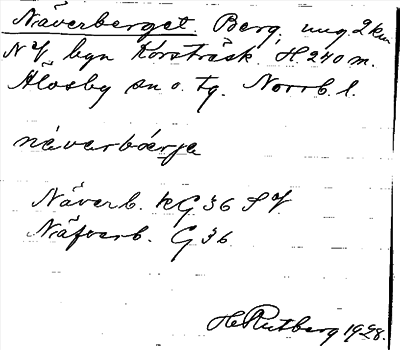 Näverberget. Berg, ung. 2 km
N V byn Korsträsk. H 240 m.
Älvsby sn o. tg. Norrb. l.
nävarbärje
Näverb. KG 36 S V
Näfverb. G 36
H Rutberg 1928.